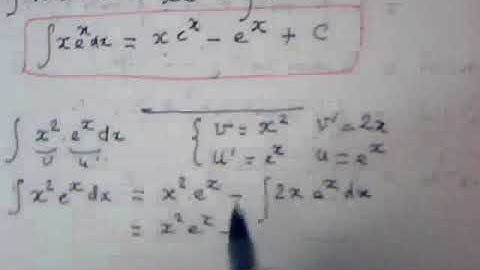 ∫xeˣdx = xeˣ - eˣ + C
∫ x² . eˣ dx { v = x² v' = 2x
v u' u' = eˣ u = eˣ
∫ x² eˣ dx = x² eˣ - ∫ 2x eˣ dx
= x² eˣ -